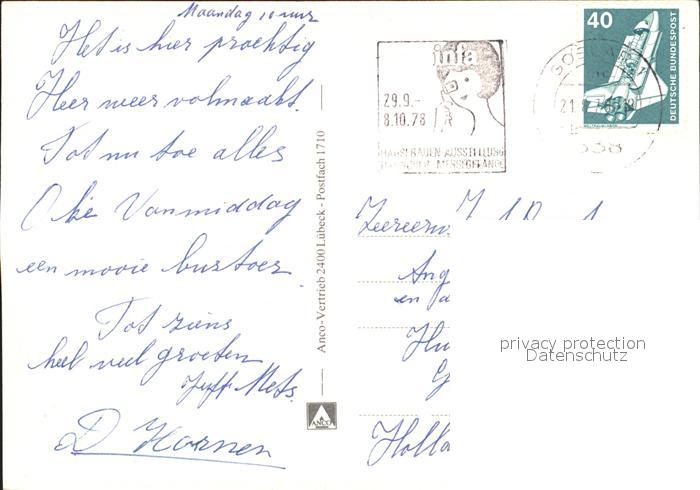 Maandag 10 uur
Het is hier prachtig
Heer weer volmaakt.
Tot nu toe alles
Oke Vanmiddag
een mooie bustoer.
Tot ziens
heel veel groeten
Juff Mets.
D Hornen
Anco-Vertrieb 2400 Lübeck - Postfach 1710
ANCO
infa
29.9.-
8.10.78
HAUSFRAUEN-AUSSTELLUNG
MESSEGELÄNDE
GOSLAR
338
40
DEUTSCHE BUNDESPOST
Ang
en
Hu
Holla
privacy protection
Datenschutz